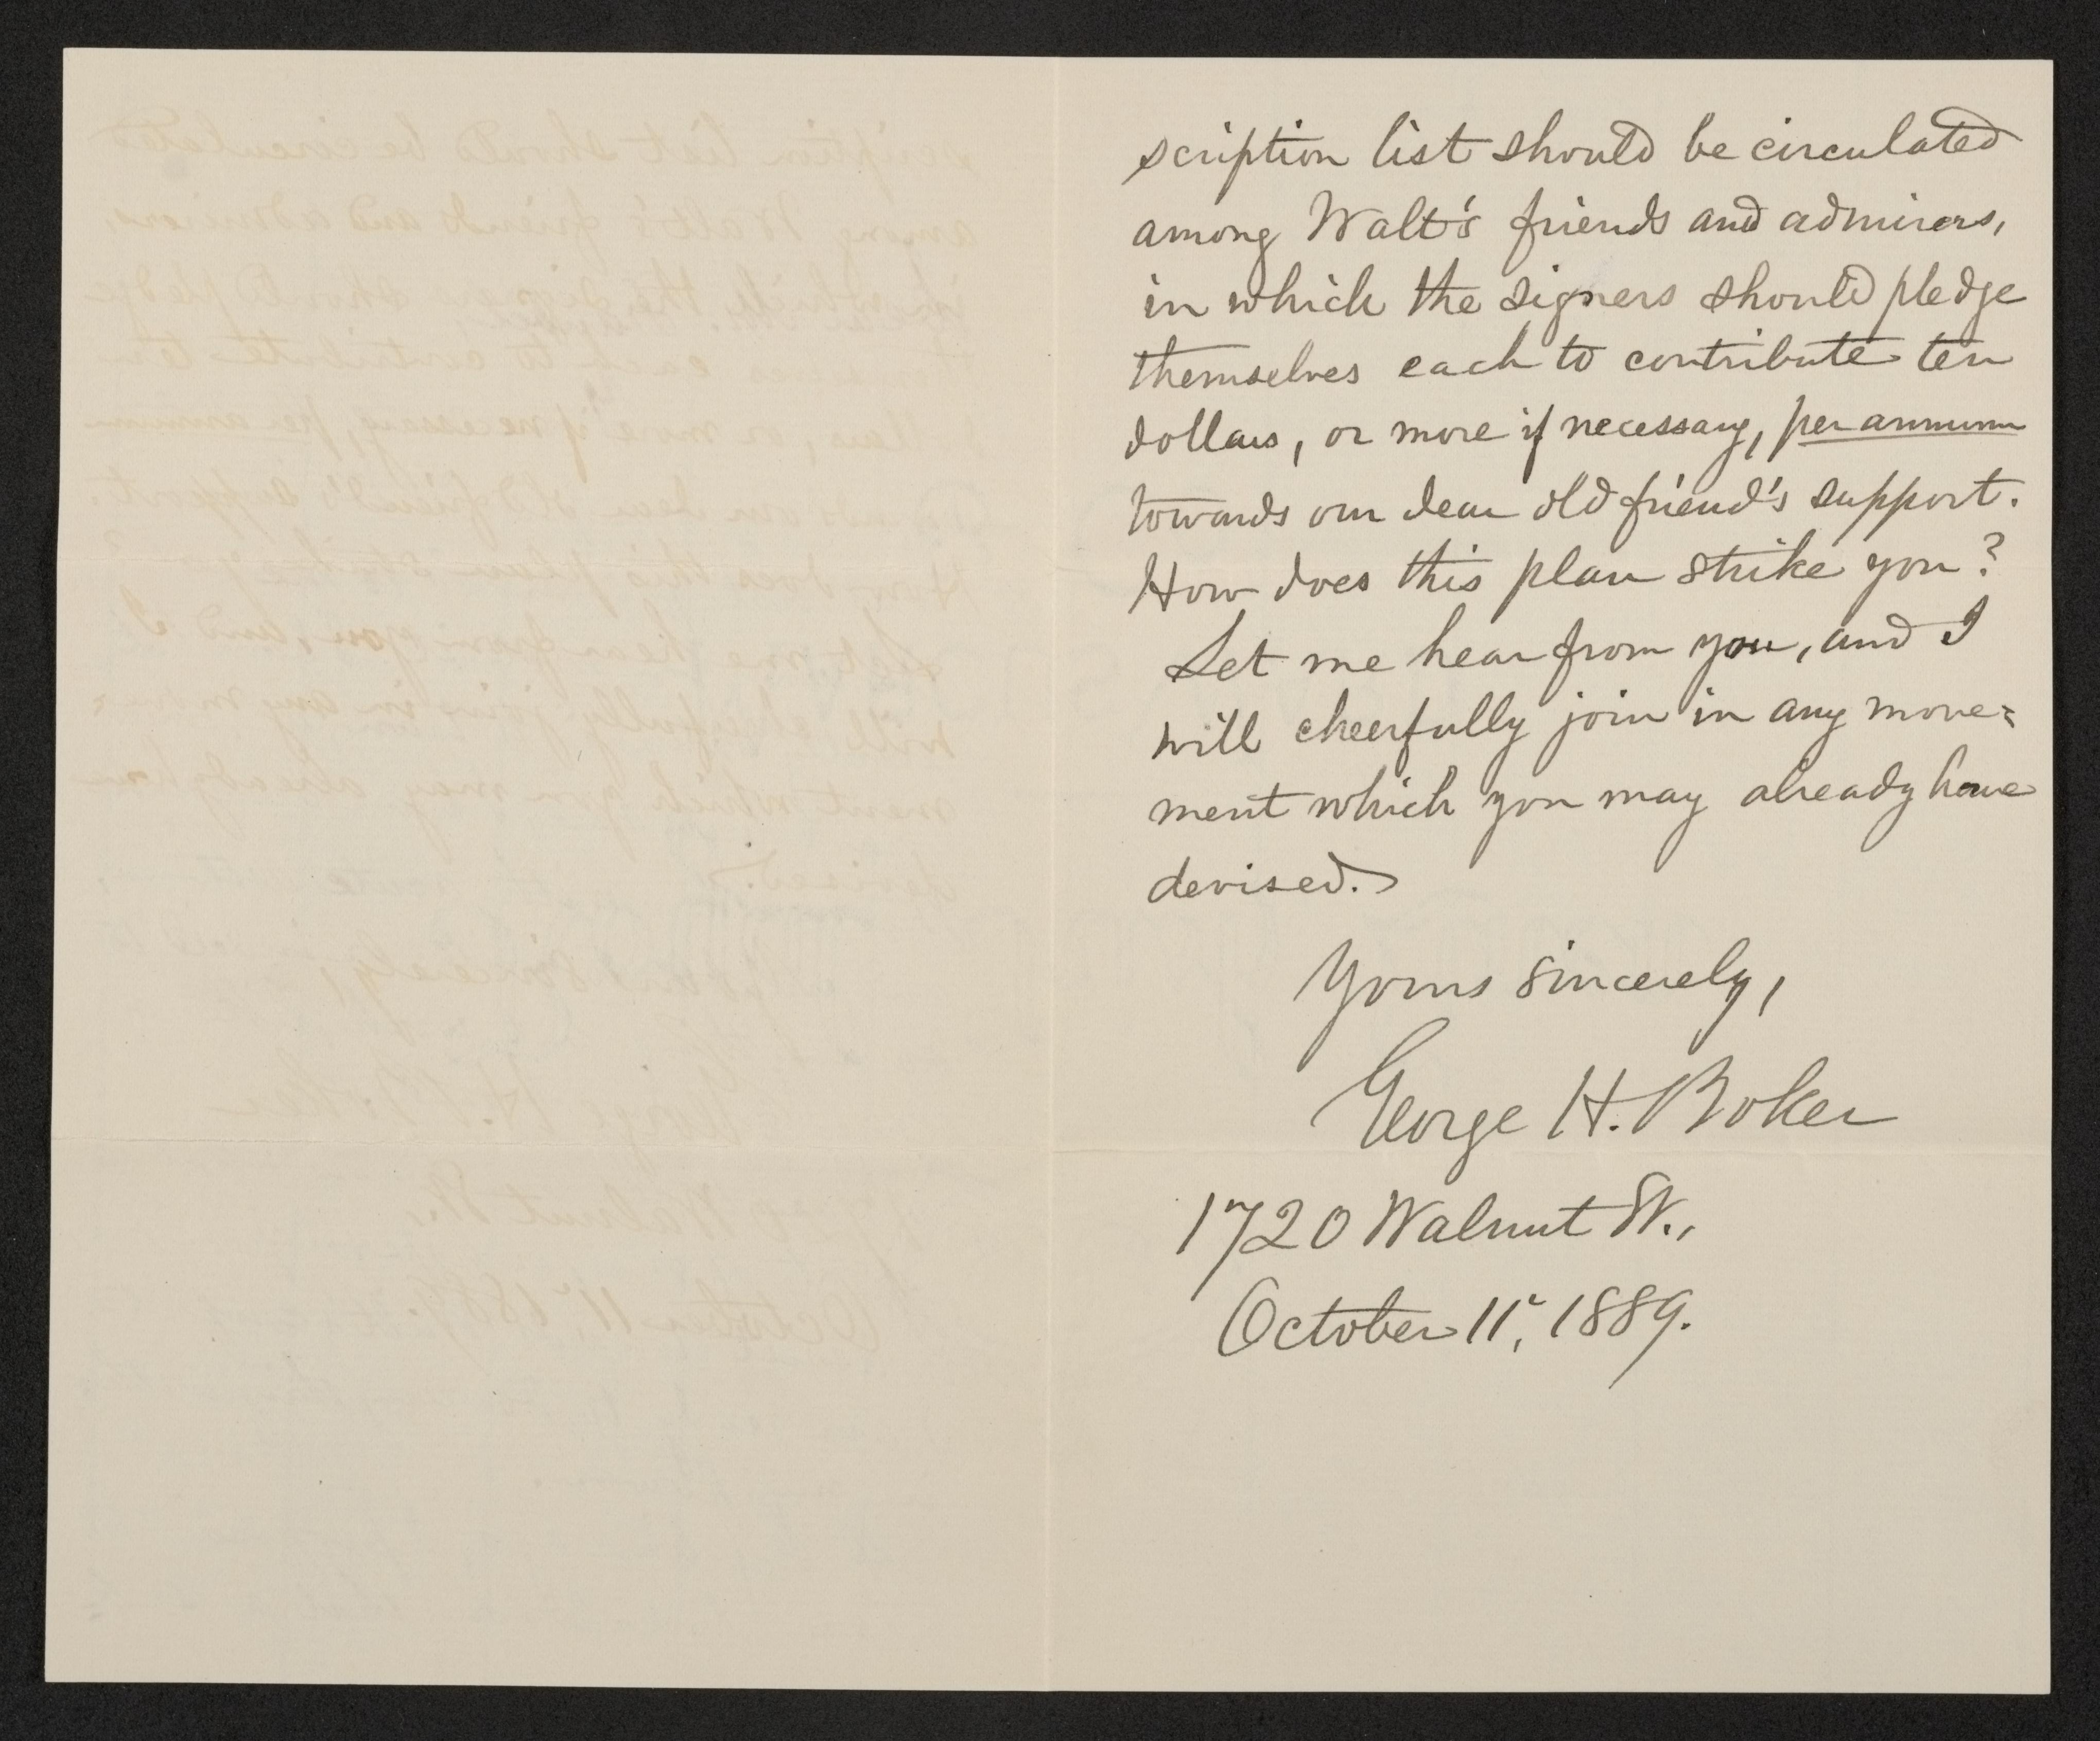 scription list should be circulated
among Walt's friends and admirers,
in which the signers should pledge
themselves each to contribute ten
dollars, or more if necessary, per annum
towards our dear old friend's support.
How does this plan strike you?
Let me hear from you, and I
will cheerfully join in any move=
ment which you may already have
devised.
Yours sincerely,
George H. Boker
1720 Walnut St.,
October 11, 1889.